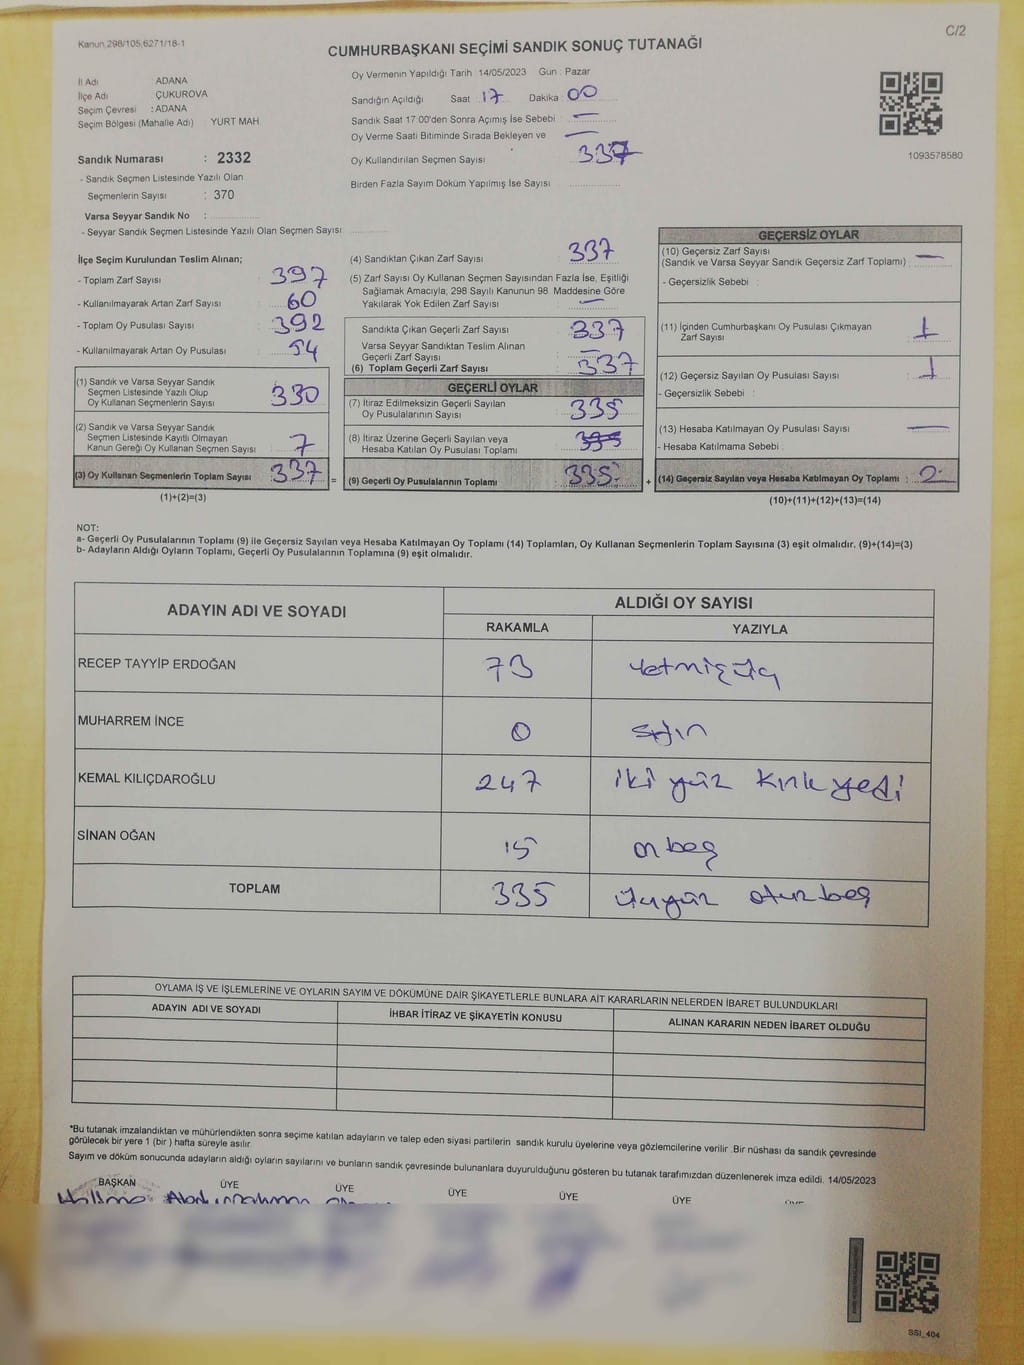 Kanun,298/105,6271/18-1
C/2
CUMHURBAŞKANI SEÇİMİ SANDIK SONUÇ TUTANAĞI
İl Adı ADANA
İlçe Adı ÇUKUROVA
Seçim Çevresi : ADANA
Seçim Bölgesi (Mahalle Adı) YURT MAH.
Oy Vermenin Yapıldığı Tarih : 14/05/2023 Gun : Pazar
Sandığın Açıldığı Saat 17 Dakika : 00
Sandık Saat 17:00'den Sonra Açımış İse Sebebi : —
Oy Verme Saati Bitiminde Sırada Bekleyen ve —
Oy Kullandırılan Seçmen Sayısı 337
Birden Fazla Sayım Döküm Yapılmış İse Sayısı
1093578580
Sandık Numarası : 2332
- Sandık Seçmen Listesinde Yazılı Olan
Seçmenlerin Sayısı : 370
Varsa Seyyar Sandık No :
- Seyyar Sandık Seçmen Listesinde Yazılı Olan Seçmen Sayısı
İlçe Seçim Kurulundan Teslim Alınan;
- Toplam Zarf Sayısı : 397
- Kullanılmayarak Artan Zarf Sayısı : 60
- Toplam Oy Pusulası Sayısı : 392
- Kullanılmayarak Artan Oy Pusulası : 54
(1) Sandık ve Varsa Seyyar Sandık
Seçmen Listesinde Yazılı Olup
Oy Kullanan Seçmenlerin Sayısı : 330
(2) Sandık ve Varsa Seyyar Sandık
Seçmen Listesinde Kayıtlı Olmayan
Kanun Gereği Oy Kullanan Seçmen Sayısı : 7
(3) Oy Kullanan Seçmenlerin Toplam Sayısı : 337 =
(1)+(2)=(3)
(4) Sandıktan Çıkan Zarf Sayısı : 337
(5) Zarf Sayısı Oy Kullanan Seçmen Sayısından Fazla İse, Eşitliği
Sağlamak Amacıyla, 298 Sayılı Kanunun 98 Maddesine Göre
Yakılarak Yok Edilen Zarf Sayısı : —
Sandıkta Çıkan Geçerli Zarf Sayısı : 337
Varsa Seyyar Sandıktan Teslim Alınan
Geçerli Zarf Sayısı : —
(6) Toplam Geçerli Zarf Sayısı : 337
GEÇERLİ OYLAR
(7) İtiraz Edilmeksizin Geçerli Sayılan
Oy Pusulalarının Sayısı : 335
(8) İtiraz Üzerine Geçerli Sayılan veya
Hesaba Katılan Oy Pusulası Toplamı : 335
(9) Geçerli Oy Pusulalarının Toplamı : 335 +
GEÇERSİZ OYLAR
(10) Geçersiz Zarf Sayısı
(Sandık ve Varsa Seyyar Sandık Geçersiz Zarf Toplamı) : —
- Geçersizlik Sebebi :
(11) İçinden Cumhurbaşkanı Oy Pusulası Çıkmayan
Zarf Sayısı : 1
(12) Geçersiz Sayılan Oy Pusulası Sayısı : 1
- Geçersizlik Sebebi :
(13) Hesaba Katılmayan Oy Pusulası Sayısı : —
- Hesaba Katılmama Sebebi :
(14) Geçersiz Sayılan veya Hesaba Katılmayan Oy Toplamı : 2
(10)+(11)+(12)+(13)=(14)
NOT:
a- Geçerli Oy Pusulalarının Toplamı (9) ile Geçersiz Sayılan veya Hesaba Katılmayan Oy Toplamı (14) Toplamları, Oy Kullanan Seçmenlerin Toplam Sayısına (3) eşit olmalıdır. (9)+(14)=(3)
b- Adayların Aldığı Oyların Toplamı, Geçerli Oy Pusulalarının Toplamına (9) eşit olmalıdır.
ADAYIN ADI VE SOYADI
ALDIĞI OY SAYISI
RAKAMLA YAZIYLA
RECEP TAYYİP ERDOĞAN 73 yetmişüç
MUHARREM İNCE 0 sıfır
KEMAL KILIÇDAROĞLU 247 iki yüz kırk yedi
SİNAN OĞAN 15 on beş
TOPLAM 335 üçyüz otuzbeş
OYLAMA İŞ VE İŞLEMLERİNE VE OYLARIN SAYIM VE DÖKÜMÜNE DAİR ŞİKAYETLERLE BUNLARA AİT KARARLARIN NELERDEN İBARET BULUNDUKLARI
ADAYIN ADI VE SOYADI İHBAR İTİRAZ VE ŞİKAYETİN KONUSU ALINAN KARARIN NEDEN İBARET OLDUĞU
*Bu tutanak imzalandıktan ve mühürlendikten sonra seçime katılan adayların ve talep eden siyasi partilerin sandık kurulu üyelerine veya gözlemcilerine verilir .Bir nüshası da sandık çevresinde
görülecek bir yere 1 (bir ) hafta süreyle asılır.
Sayım ve döküm sonucunda adayların aldığı oyların sayılarını ve bunların sandık çevresinde bulunanlara duyurulduğunu gösteren bu tutanak tarafımızdan düzenlenerek imza edildi. 14/05/2023
BAŞKAN ÜYE ÜYE ÜYE ÜYE ÜYE ÜYE
SSI_404